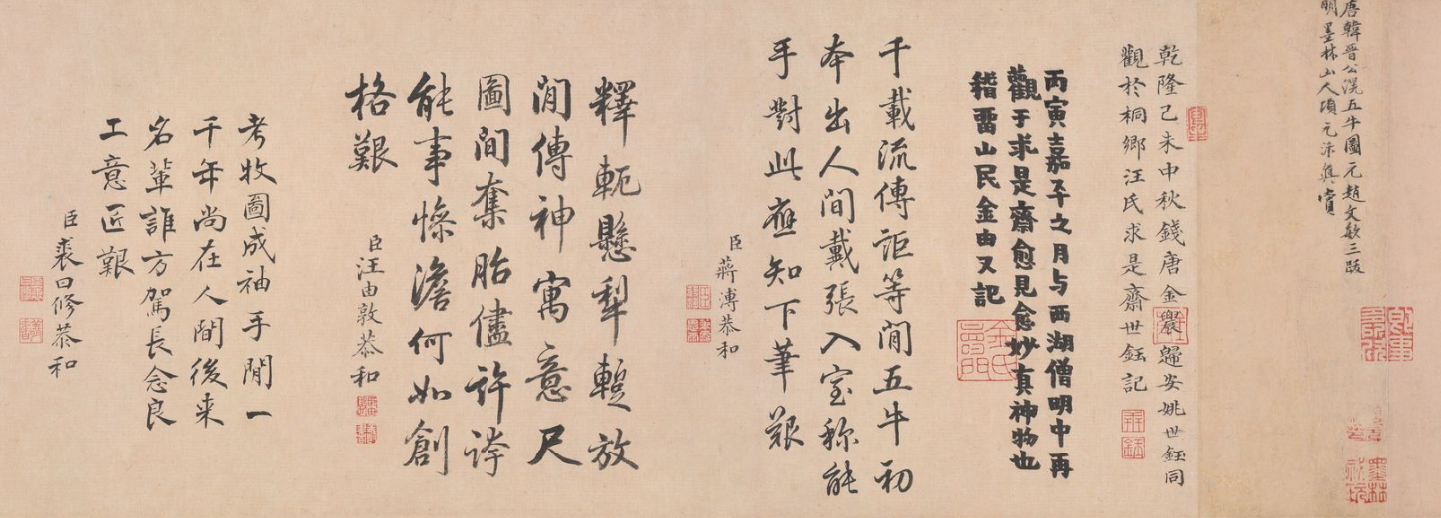 唐韓晉公滉五牛圖元趙文敏三跋
明墨林山人項元汴真賞
乾隆己未中秋錢唐金農歸安姚世鈺同
觀於桐鄉汪氏求是齋世鈺記
丙寅嘉平之月与西湖僧明中再
觀于求是齋愈見愈妙真神物也
稽畱山民金由又記
千載流傳詎等閒五牛初
本出人間戴張入室称能
手對此應知下筆艱
臣蔣溥恭和
釋軛懸犁暫放
閒傳神寓意尺
圖間奪胎儘許誇
能事慘澹何如創
格艱
臣汪由敦恭和
考牧圖成袖手閒一
千年尚在人間後来
名輩誰方駕長念良
工意匠艱
臣裘曰修恭和